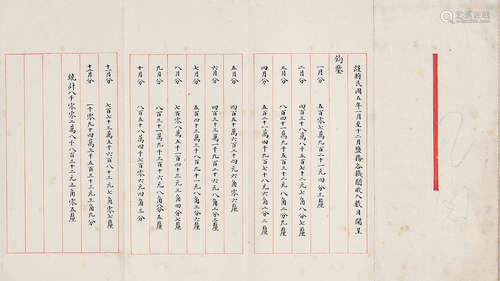 謹將民國五年一月至十二月鹽務各機關收入數目開呈
鈞鑒
一月分 五百零七萬九百二十一元四分三釐
二月分 四百三十三萬二千八百四十二元八角八分二釐
三月分 八百四十一萬九千八百二十八元二角九釐
四月分 五百二十萬四千九百七十一元八角二分二釐
五月分 四百五十六萬六百三十四元六角二分六釐
六月分 四百三十三萬一千九百三十二元二角四分四釐
七月分 五百四十三萬八千九百十一元八角三分六釐
八月分 七百零八萬五千一百四十三元四角四分七釐
九月分 八百四十一萬九千三百十六元三角五釐
十月分 八百五十八萬四千七百零六元四角三分
十一月分 七百七十三萬五千六百八十三元七角零七釐
十二月分 一千零九十四萬三千五百三十三元三角九分
統計八千零零二萬八千八百十二元三角零五釐